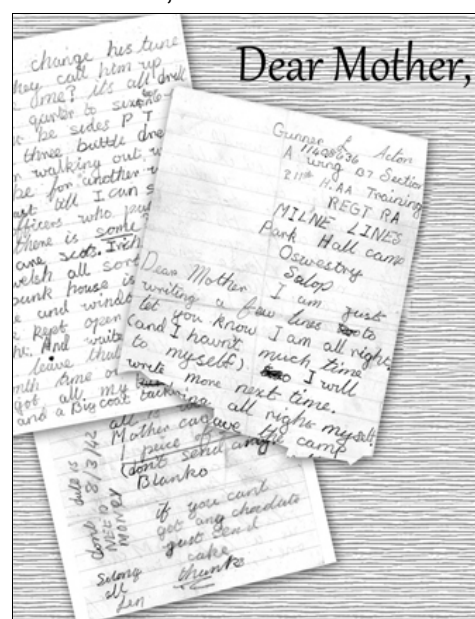 Dear Mother,
change his tune
they call him up
time? it's all drill
quarter to six
be sides P T
three buttle dre
walking out
be for another
till I can s
officers who pu
there is some
are scots. Irich
welsh all sort
bunk house is
and windo
kept open
And write
leave that
mth time or
got all my
and a Big coat
Gunner L Acton
11408636
A wing B7 Section
211th H.AA Training
REGT RA
MILNE LINES
Park Hall camp
Oswestry
Salop
Dear Mother I am just
writing a few lines to
let you know I am all right
(and I havnt much time
to myself) so I will
write more next time.
all right myself.
camp
all is
Mother can
1 piece of
(dont send any
Blanko
if you cant
get any chocolate
just send
cake
thanks
date is
8/3/42
dont
NEED
MONEY
Solong
all
Len